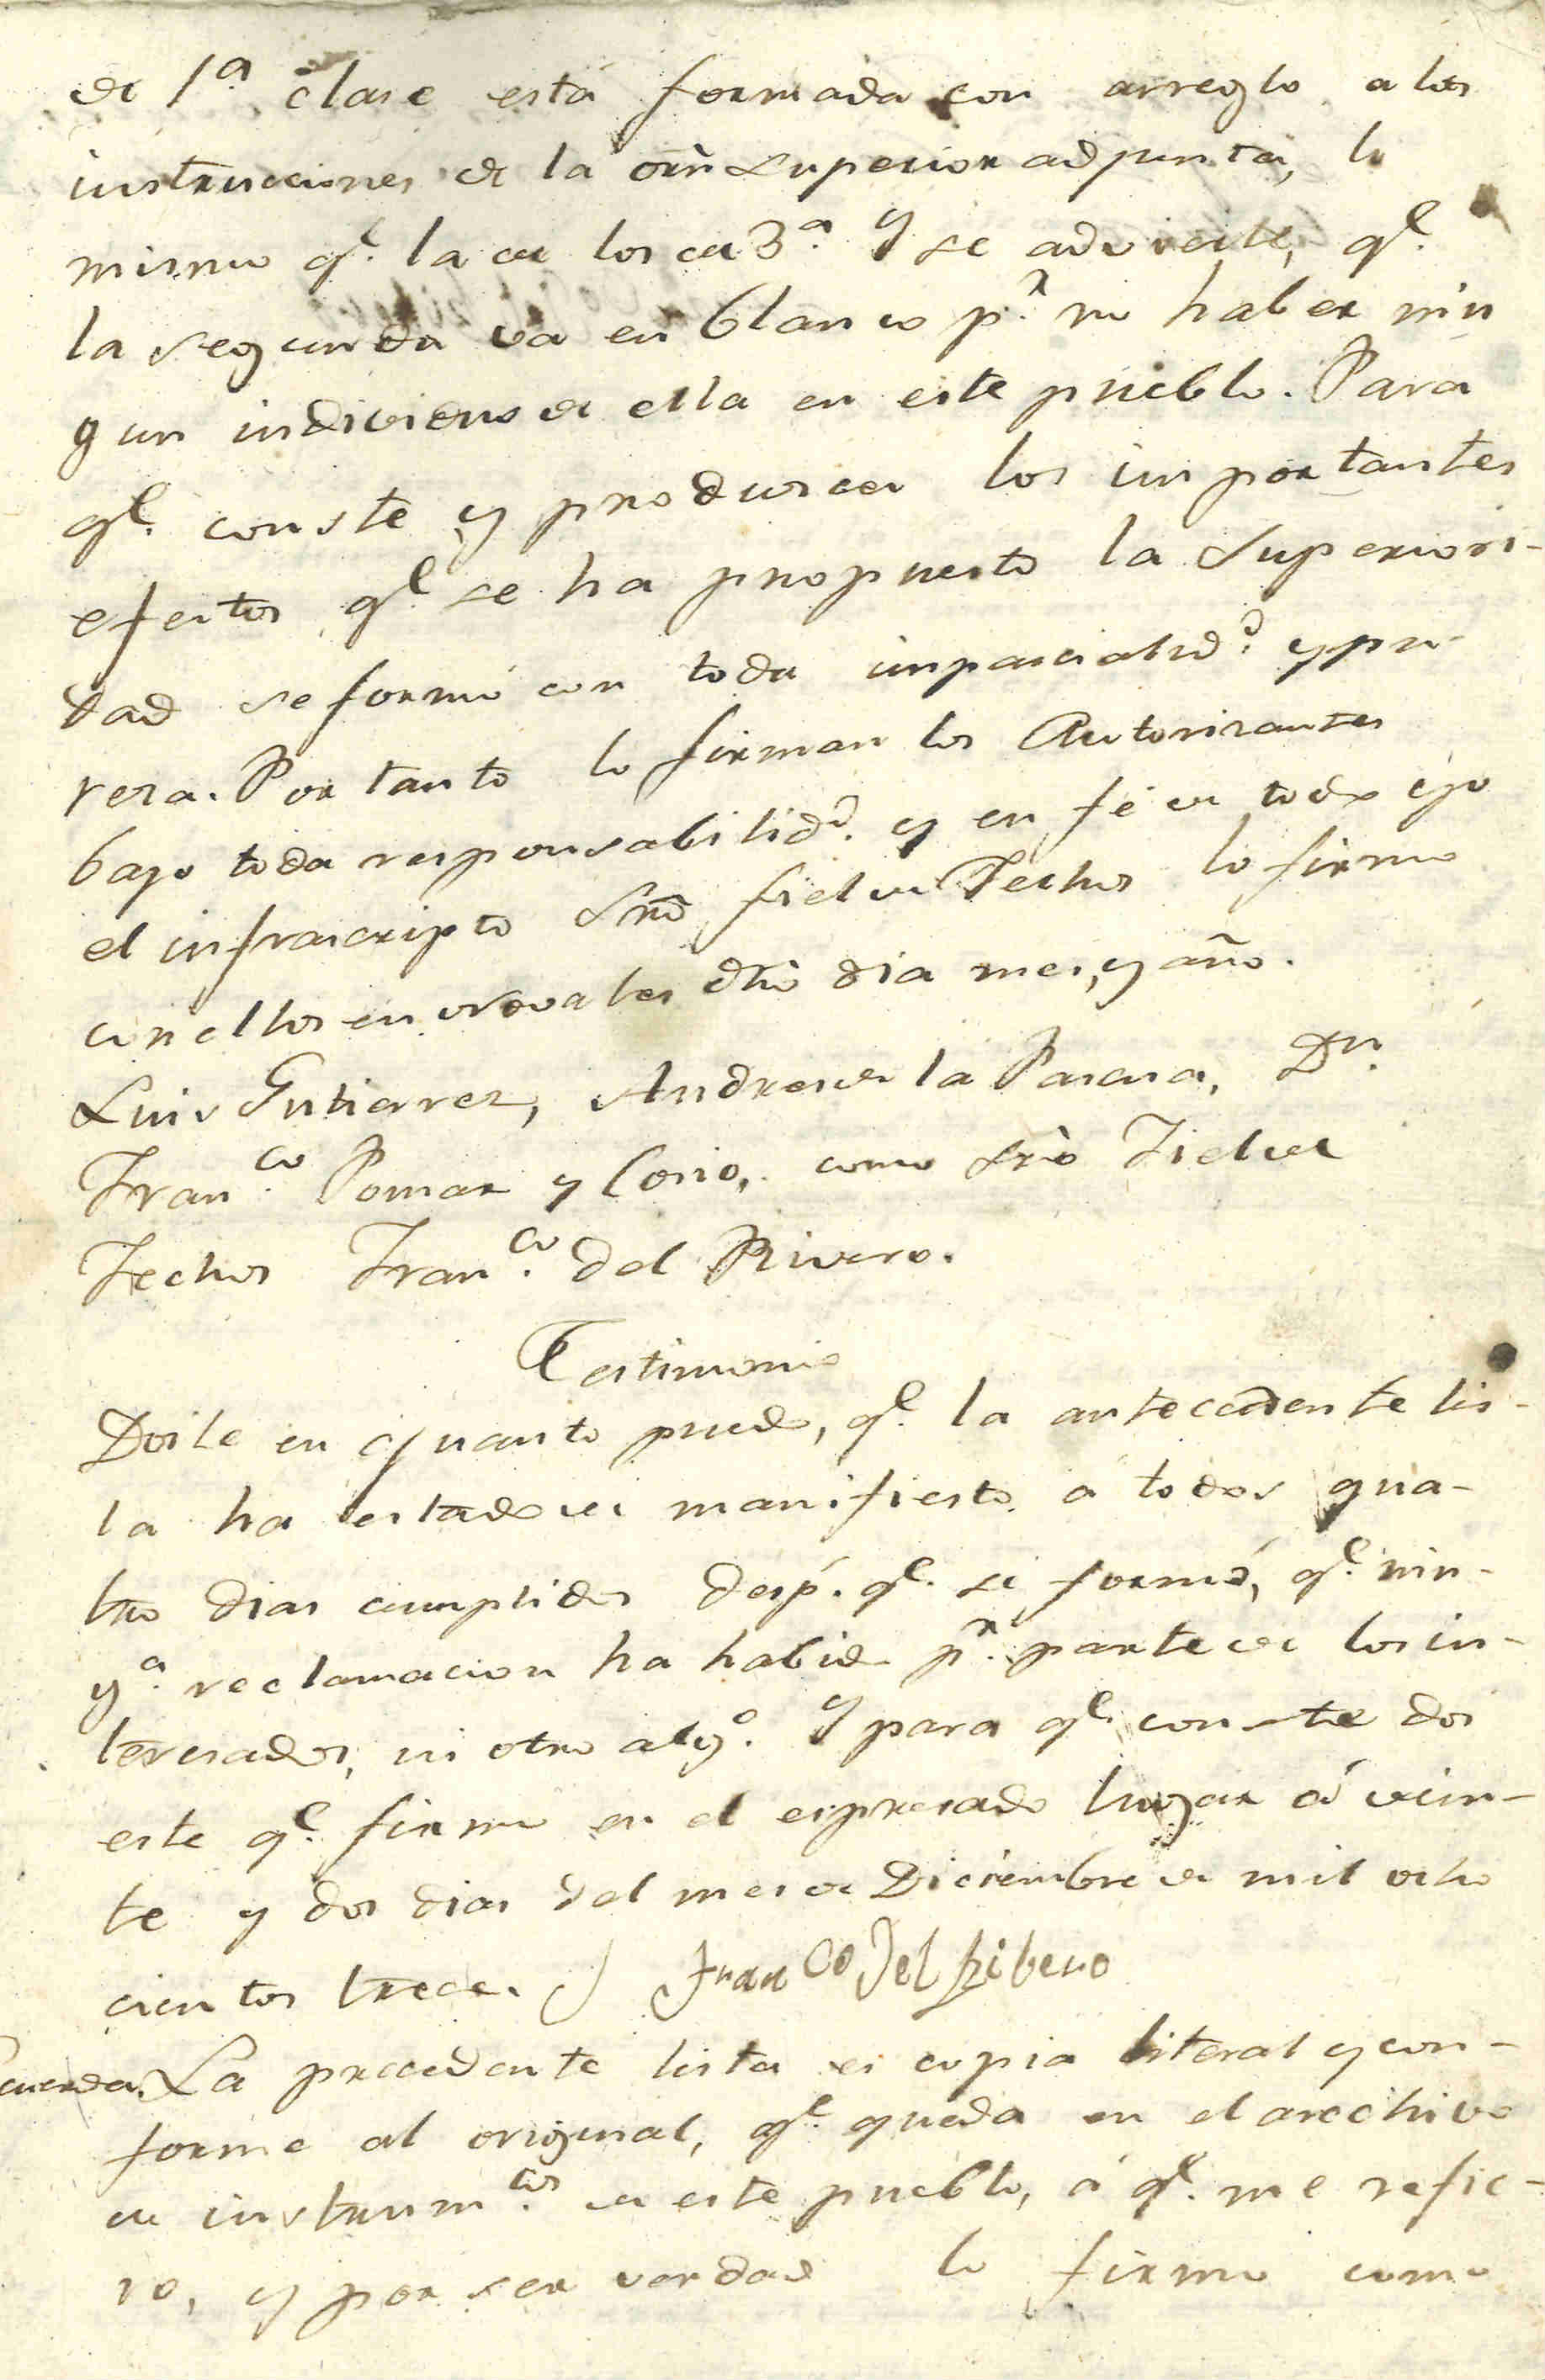 de 1ª. clase está formada con arreglo a las
instrucciones de la orñ superior adjunta, lo
mismo qᵉ. la de los de 3ª. y se advierte, qᵉ.
la segunda va en blanco pʳ. no haber nin
gun individuo de ella en este pueblo. Para
qᵉ. conste y produscan los importantes
efectos qᵉ. se ha propuesto la Superiori-
dad se formó con toda imparcialidᵈ. y pu-
reza. Por tanto lo firman los Autorizantes
bajo toda responsabilidᵈ. y en fé de todo yo
el infrascripto Srñō fiel de Fechos lo firmo
con ellos en Novales dhõ dia mes, y año.
Luis Gutierrez, Andres de la Pascua, Dⁿ.
Franᶜᵒ. Pomar y Cosio, como Srio Fiel de
Fechos Franᶜᵒ. del Rivero.
Testimonio
Doile en quanto puedo, qᵉ. la antecedente lis-
ta ha estado de manifiesto á todos qua-
tro dias cumplidos desp. qᵉ. se formó, qᵉ. nin-
gª. reclamacion ha habido pʳ. parte de los in-
teresados, ni otro algº. y para qᵉ. conste doi
este qᵉ. firmo en el espresado lugar á vein-
te y dos dias del mes de Diciembre de mil ocho
cientos trece. Franᶜᵒ del Ribero
cuerda. La precedente lista es copia literal y con-
forme al original, qᵉ. queda en el archivo
de instrumᵗᵒˢ. de este pueblo, á qᵉ. me refie-
ro, y por ser verdad lo firmo como